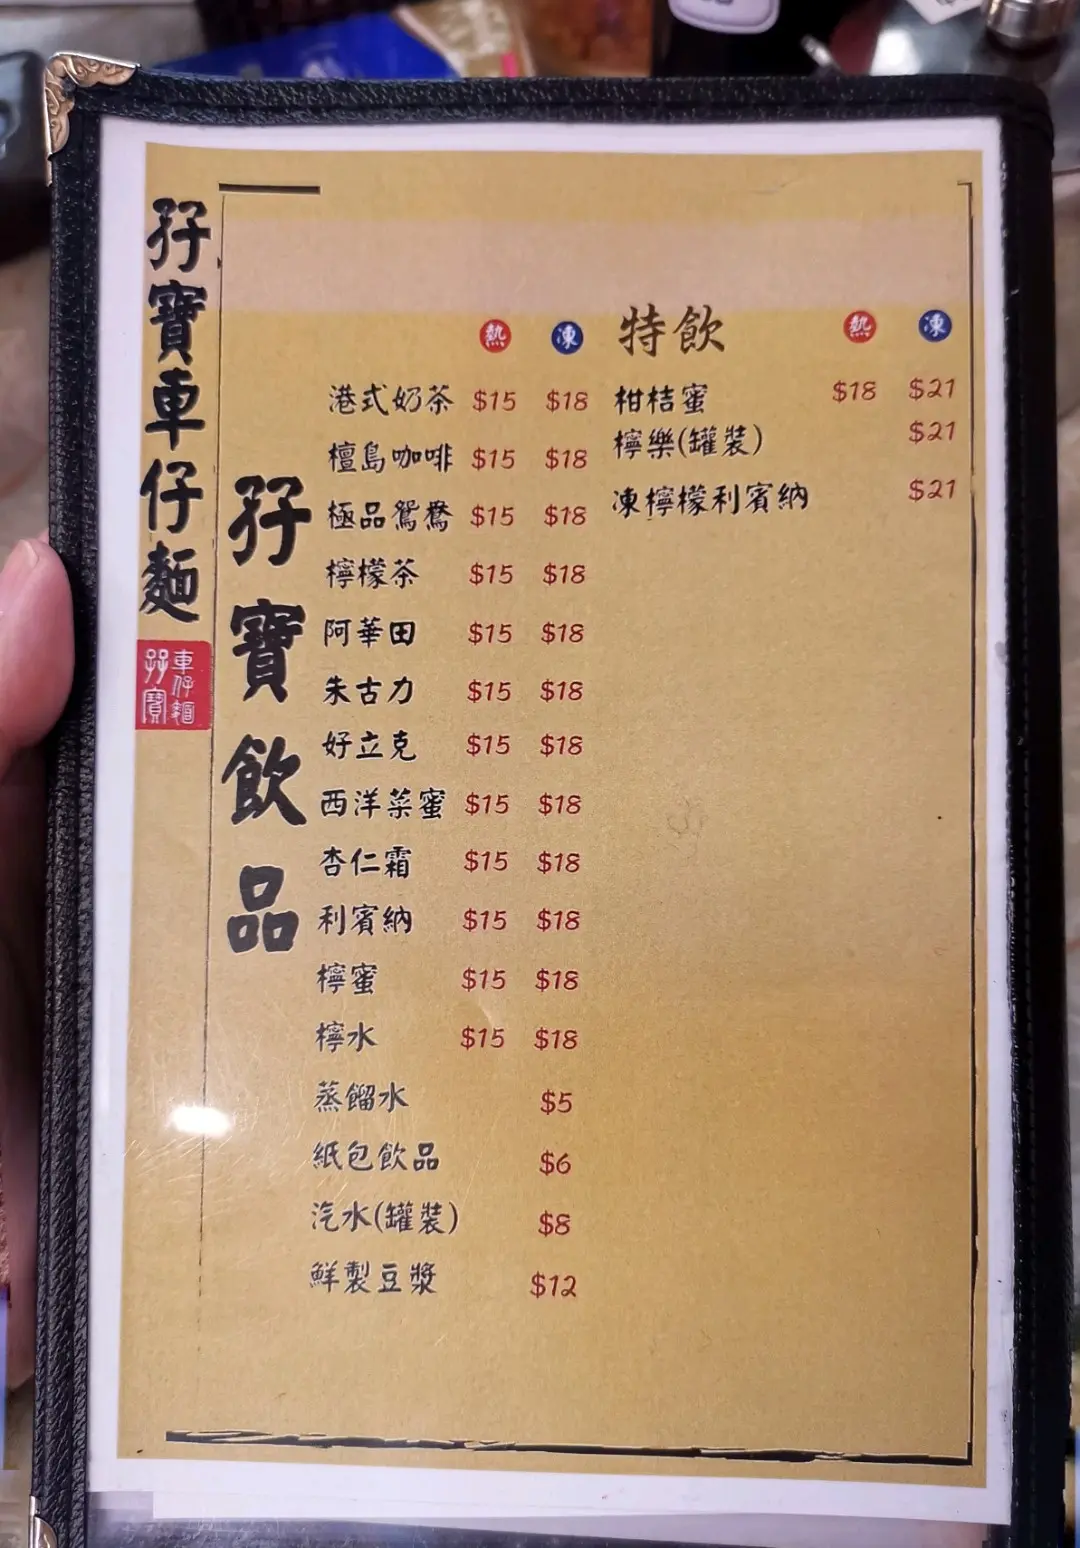 孖寶車仔麵
車仔麵
孖寶
孖寶飲品
熱 凍
港式奶茶 $15 $18
檀島咖啡 $15 $18
極品鴛鴦 $15 $18
檸檬茶 $15 $18
阿華田 $15 $18
朱古力 $15 $18
好立克 $15 $18
西洋菜蜜 $15 $18
杏仁霜 $15 $18
利賓納 $15 $18
檸蜜 $15 $18
檸水 $15 $18
蒸餾水 $5
紙包飲品 $6
汽水(罐裝) $8
鮮製豆漿 $12
特飲 熱 凍
柑桔蜜 $18 $21
檸樂(罐裝) $21
凍檸檬利賓納 $21